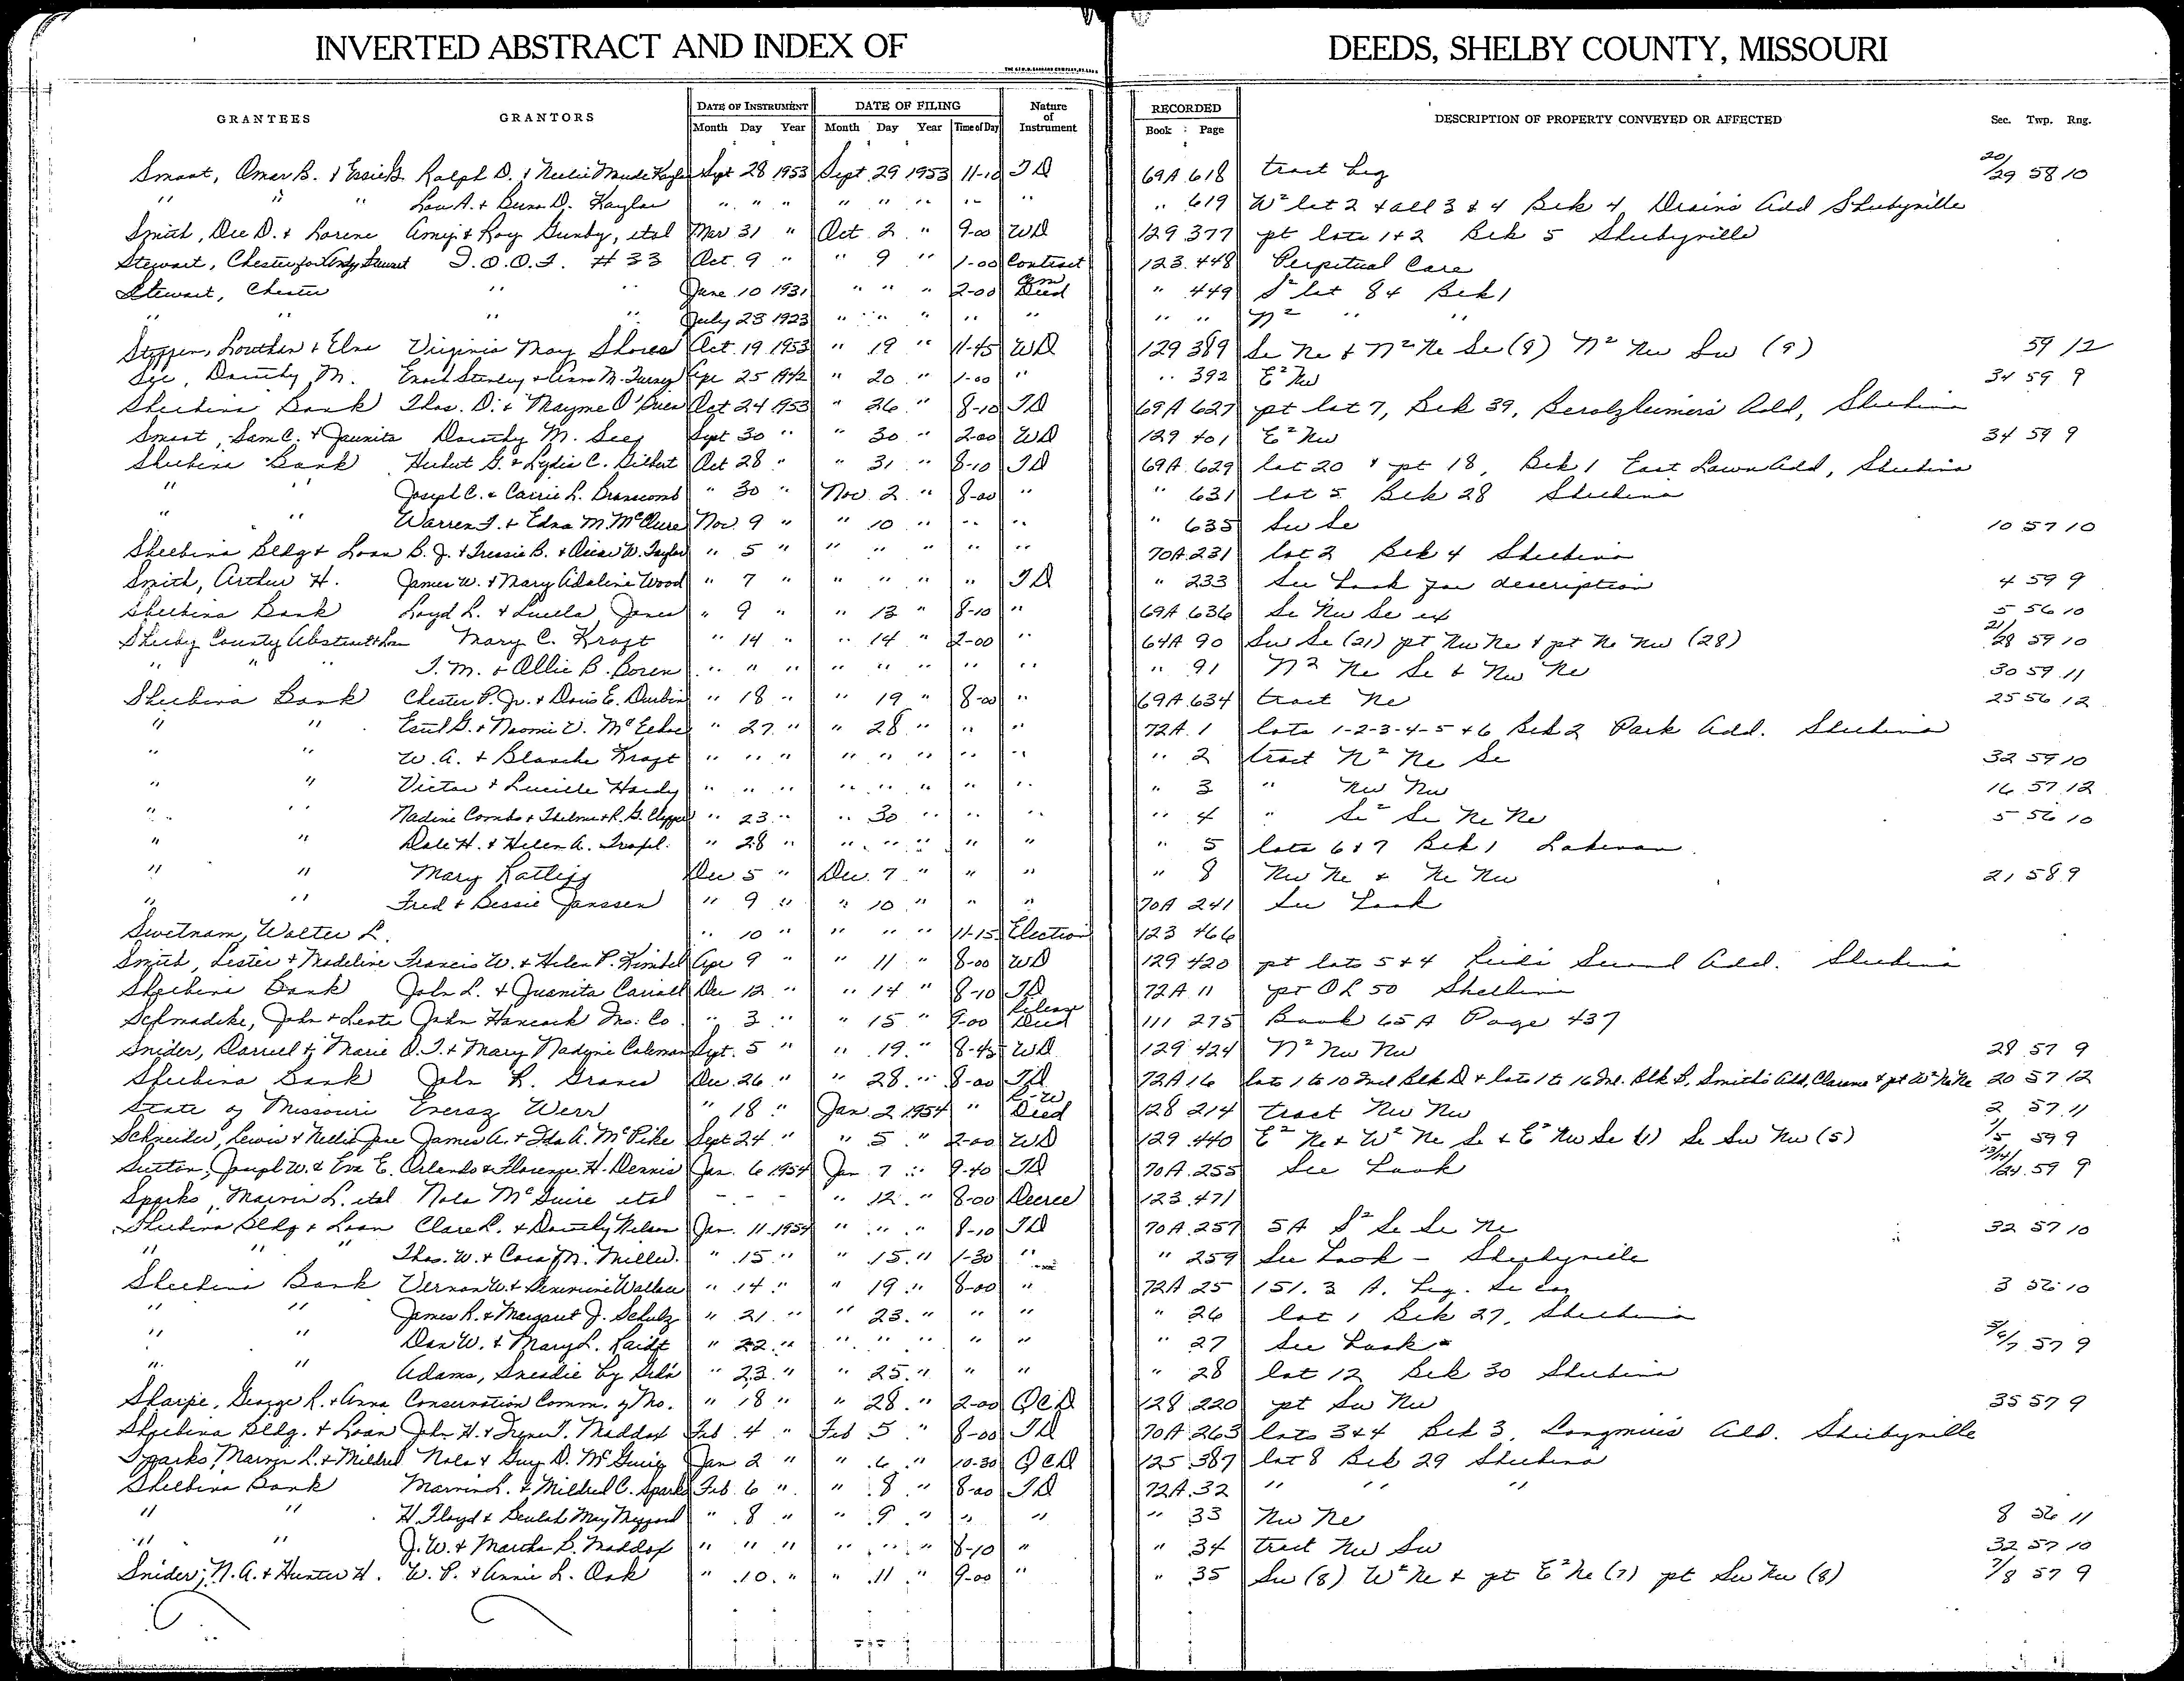 INVERTED ABSTRACT AND INDEX OF DEEDS, SHELBY COUNTY, MISSOURI
GRANTEES GRANTORS DATE OF INSTRUMENT DATE OF FILING Nature of Instrument RECORDED DESCRIPTION OF PROPERTY CONVEYED OR AFFECTED Sec. Twp. Rng.
Month Day Year Month Day Year Time of Day Book Page
Smoot, Omar B. & Essie G. Ralph D. & Sept 28 1953 Sept 29 1953 11-10 TD 69A 618 tract beg 20/29 58 10
" " " Lou A. & D. Kaylor " " " " " " " " " 619 W² lot 2 & all 3 & 4 Blk 4 Add Shelbyville
Smith, Dee D. & Lorene Amy & Roy Gunby, etal Mar 31 " Oct 2 " 9-00 WD 129 377 pt lots 1+2 Blk 5 Shelbyville
Stewart, Chester for Stewart I.O.O.F. #33 Oct. 9 " " 9 " 1-00 Contract 123 448 Perpetual Care
Stewart, Chester " " June 10 1931 " " " 2-00 Cem Deed " 449 S² lot 84 Blk 1
" " " " July 23 1923 " " " " " " " N² " "
Louthan & Elna Virginia May Shores Oct. 19 1953 " 19 " 11-45 WD 129 389 Se Ne & N² Ne Se (8) N² Nw Sw (9) 59 12
Dorothy M. Enoch Stanley & Anna M. Apr 25 1942 " 20 " 1-00 " " 392 E² Nw 34 59 9
Shelbina Bank Thos. D. & Mayme O'Brien Oct 24 1953 " 26 " 8-10 TD 69A 627 pt lot 7, Blk 39, Berolzheimer's Add, Shelbina
Smoot, Sam C. & Juanita Dorothy M. Sept 30 " " 30 " 2-00 WD 129 401 E² Nw 34 59 9
Shelbina Bank Hubert G. & Lydia C. Gilbert Oct 28 " " 31 " 8-10 TD 69A 629 lot 20 & pt 18, Blk 1 East Lawn Add, Shelbina
" " Joseph C. & Carrie L. Branscomb " 30 " Nov. 2 " 8-00 " " 631 lot 5 Blk 28 Shelbina
" " Warren F. & Edna M. McClure Nov. 9 " " 10 " " " " 635 Sw Se 10 57 10
Shelbina Bldg & Loan B. J. & B. & W. Taylor " 5 " " " " " " 70A 231 lot 2 Blk 4 Shelbina
Smith, Arthur H. James W. & Mary Adaline Wood " 7 " " " " " TD " 233 See book for description 4 59 9
Shelbina Bank Loyd L. & Luella Jones " 9 " " 13 " 8-10 " 69A 636 Se Nw Se ex 5 56 10
Shelby County Abstract & Loan Mary C. Kraft " 14 " " 14 " 2-00 " 64A 90 Sw Se (21) pt Nw Ne & pt Ne Nw (28) 21/28 59 10
" " " T. M. & Ollie B. Boren " " " " " " " " " 91 N² Ne Se & Nw Ne 30 59 11
Shelbina Bank Chester P. Jr. & Doris E. Durbin " 18 " " 19 " 8-00 " 69A 634 tract Ne 25 56 12
" " G. & Naomi V. " 27 " " 28 " " " 72A 1 lots 1-2-3-4-5 & 6 Blk 2 Park Add. Shelbina
" " W. A. & Blanche Kraft " " " " " " " " " 2 tract N² Ne Se 32 59 10
" " Victor & Lucille Hardy " " " " " " " " " 3 " Nw Nw 16 57 12
" " Nadine Combs & Thelma & R. G. " 23 " " 30 " " " " 4 " Se² Se Ne Ne 5 56 10
" " Dale H. & Helen A. " 28 " " " " " " " 5 lots 6 & 7 Blk 1 Lakenan
" " Mary Ratliff Dec 5 " Dec. 7 " " " " 8 Nw Ne & Ne Nw 21 58 9
" " Fred & Bessie Janssen " 9 " " 10 " " " 70A 241 See book
Swetnam, Walter L. " 10 " " " " 11-15 Election 123 466
Smith, Lester & Madeline Francis W. & Helen P. Kimbel Apr 9 " " 11 " 8-00 WD 129 420 pt lots 5 & 4 Second Add. Shelbina
Shelbina Bank John L. & Juanita Dec 12 " " 14 " 8-10 TD 72A 11 pt OL 50 Shelbina
Schmadeke, John & John Hancock Ins. Co. " 3 " " 15 " 9-00 Release Deed 111 275 Book 65A Page 437
Snider, Darrell & Marie O. T. & Mary Nadyne Coleman Sept. 5 " " 19 " 8-45 WD 129 424 N² Nw Nw 28 57 9
Shelbina Bank John R. Graves Dec. 26 " " 28 " 8-00 TD 72A 16 lots 1 to 10 Incl Blk D & lots 1 to 16 Inl. Blk P, Smith's Add, Clarence & pt W² Ne Ne 20 57 12
State of Missouri Werr " 18 " Jan. 2 1954 " R-W Deed 128 214 tract Nw Nw 2 57 11
Schneider, Lewis & Nellie Jane James A. & Ida A. McPike Sept 24 " " 5 " 2-00 WD 129 440 E² Ne & W² Ne Se & E² Nw Se (1) Se Sw Nw (5) 1/5 59 9
Sutton, Joseph W. & Eva E. Orlando & Florence H. Dennis Jan. 6 1954 Jan 7 " 9-40 TD 70A 255 See book 59 9
Sparks, Marvin L. etal Nola McGuire etal - - - " 12 " 8-00 Decree 123 471
Shelbina Bldg & Loan Clare L. & Dorothy Nelson Jan. 11 1954 " " " 8-10 TD 70A 257 5A S² Se Se Ne 32 57 10
" " " Thos. W. & Cora M. Miller " 15 " " 15 " 1-30 " " 259 See book - Shelbyville
Shelbina Bank Vernon W. & Wallace " 14 " " 19 " 8-00 " 72A 25 151.3 A. beg. Se cor 3 56 10
" " James R. & Margaret J. Schulz " 21 " " 23 " " " " 26 lot 1 Blk 27, Shelbina
" " Dan W. & Mary L. Raidt " 22 " " " " " " " 27 See book 5/6/7 57 9
" " Adams, Sneadie by " 23 " " 25 " " " " 28 lot 12 Blk 30 Shelbina
Sharpe, George R. & Anna Conservation Comm. of Mo. " 18 " " 28 " 2-00 QCD 128 220 pt Sw Nw 35 57 9
Shelbina Bldg. & Loan John H. & T. Maddox Feb. 4 " Feb 5 " 8-00 TD 70A 263 lots 3 & 4 Blk 3, Longmire's Add. Shelbyville
Sparks, Marvin L. & Mildred Nola & Guy D. McGuire Jan 2 " " 6 " 10-30 QCD 125 387 lot 8 Blk 29 Shelbina
Shelbina Bank Marvin L. & Mildred C. Sparks Feb. 6 " " 8 " 8-00 TD 72A 32 " " "
" " H. Floyd & Beulah May " 8 " " 9 " " " " 33 Nw Ne 8 56 11
" " J. W. & Martha B. Maddox " " " " " " 8-10 " " 34 tract Nw Sw 32 57 10
Snider, N. A. & Hunter H. W. P. & Annie L. Oak " 10 " " 11 " 9-00 " " 35 Sw (8) W² Ne & pt E² Ne (7) pt Sw Nw (8) 7/8 57 9